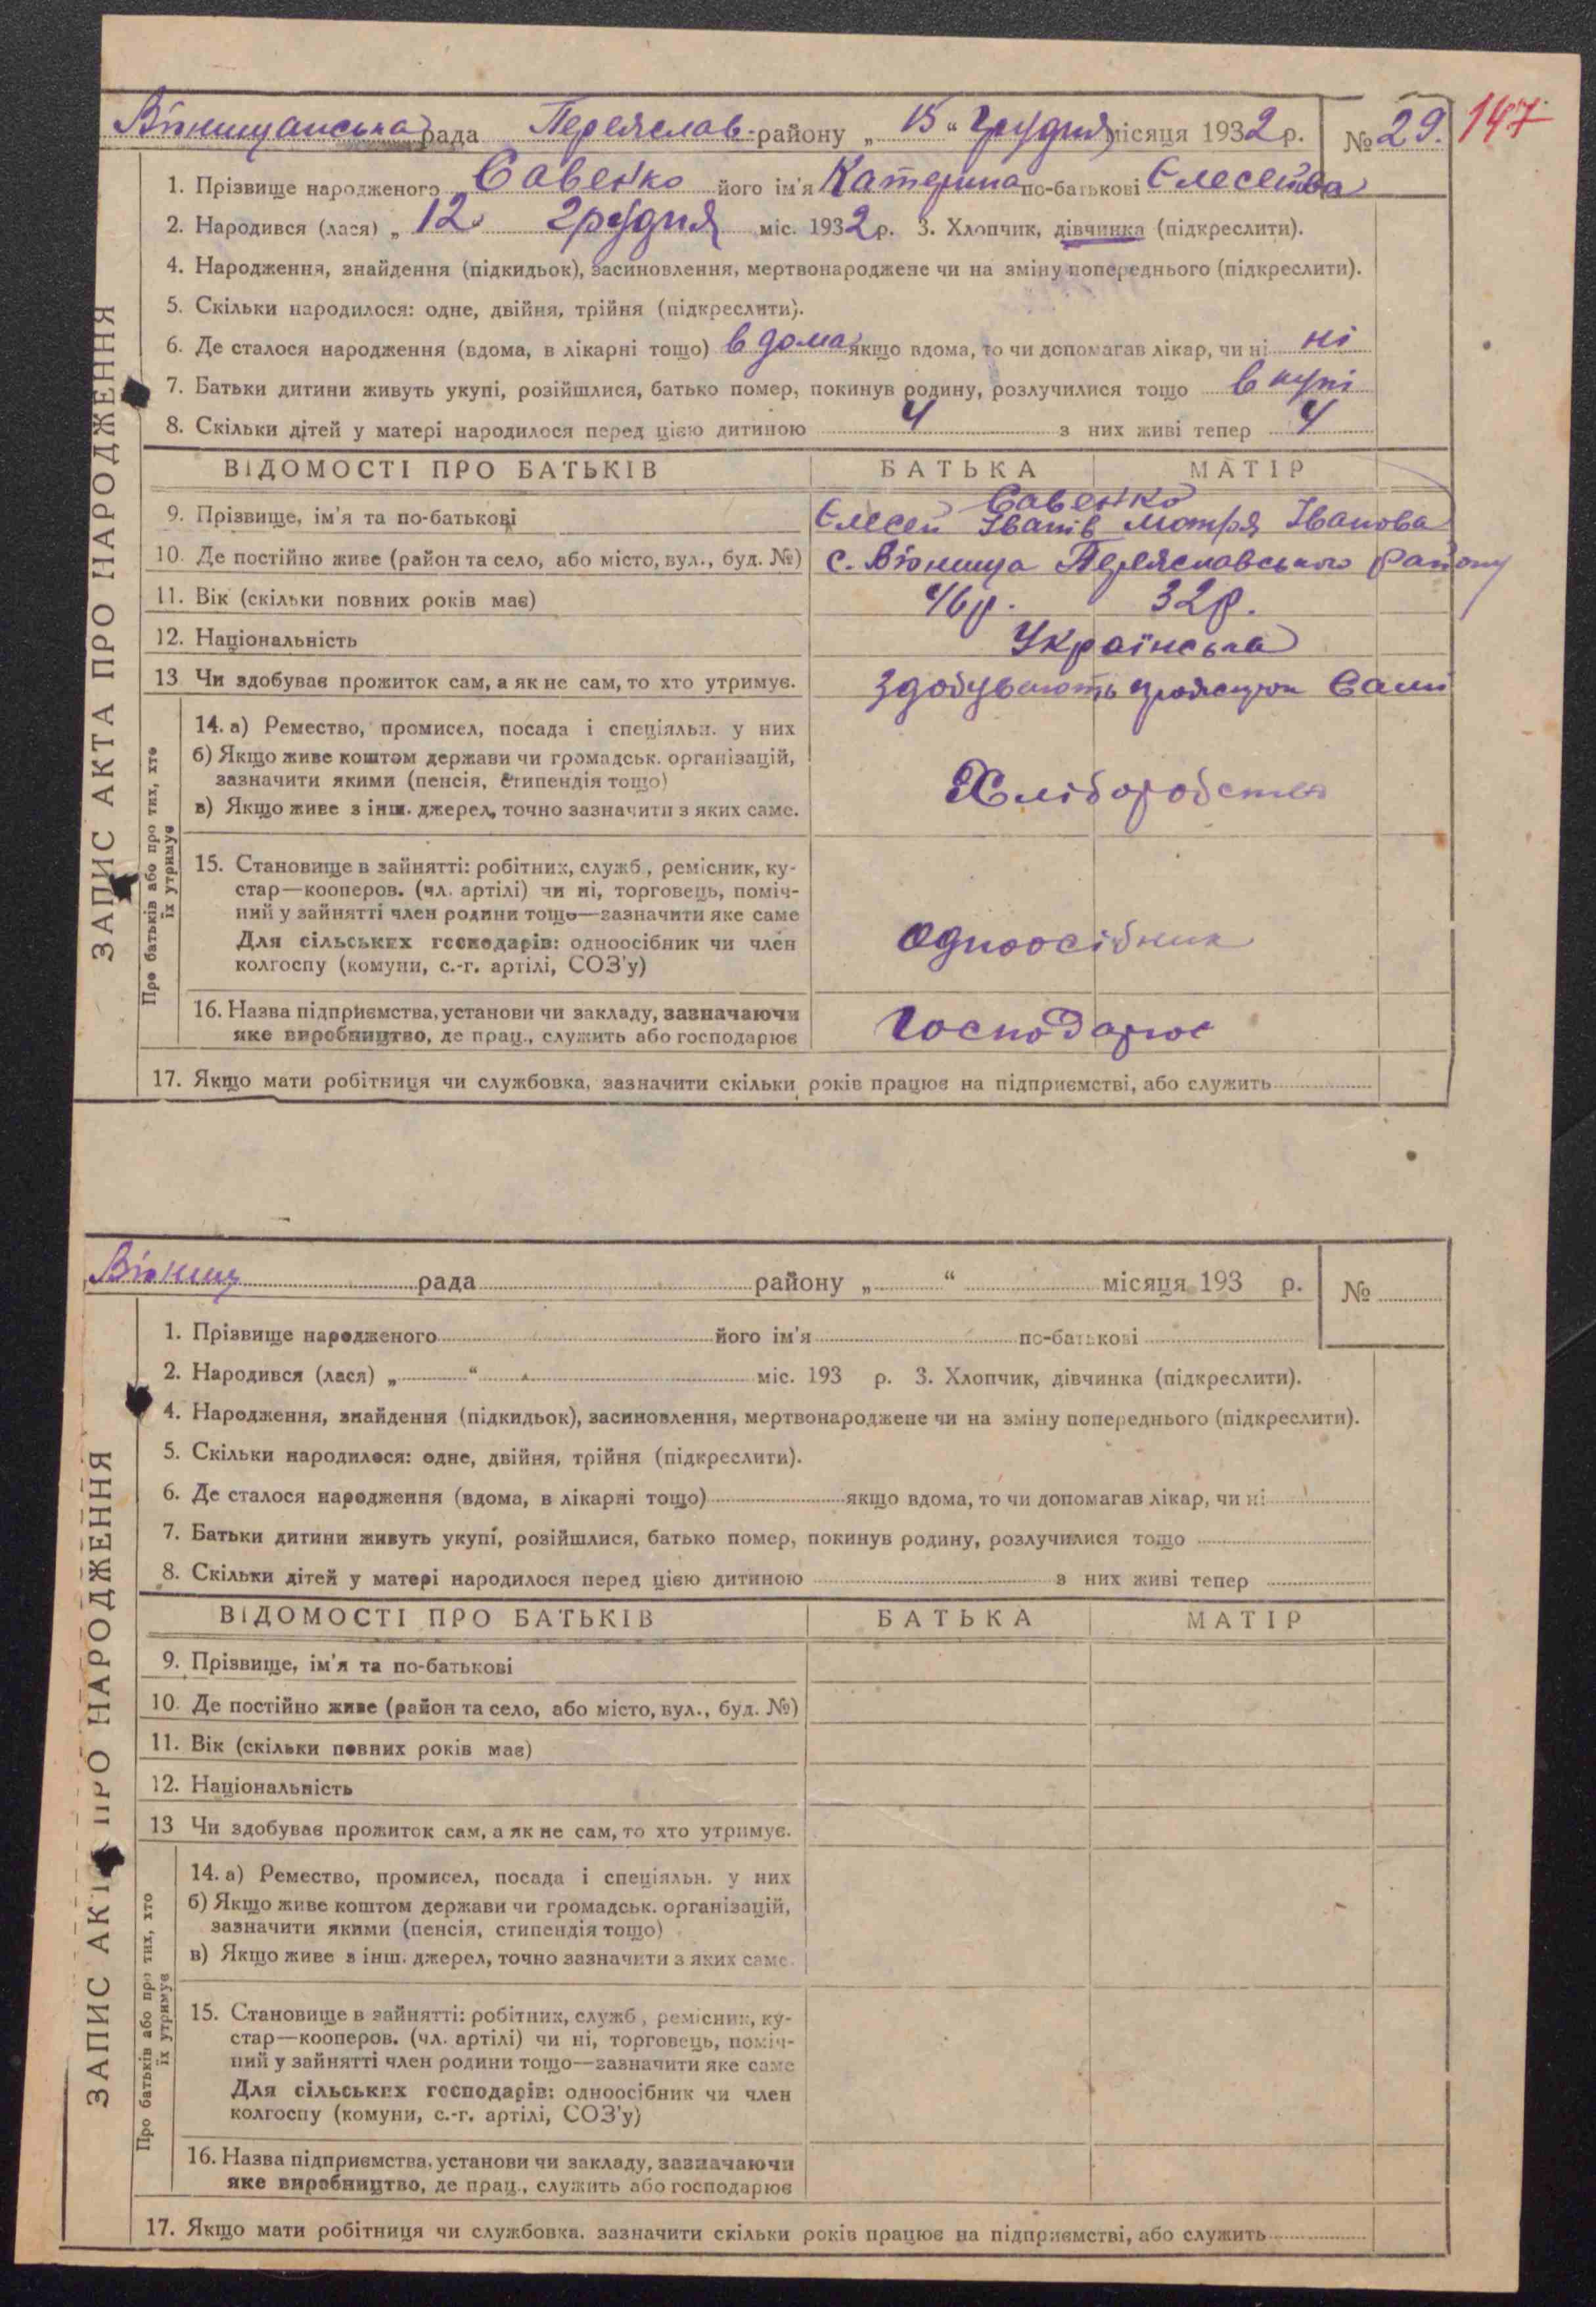 Вюнищанська рада Переяслав. району „ 15 “ грудня місяця 1932 р. № 29. 147
1. Прізвище народженого Савенко його ім'я Катерина по-батькові Єлесейова
2. Народився (лася) „ 12 грудня міс. 1932 р. 3. Хлопчик, дівчинка (підкреслити).
4. Народження, знайдення (підкидьок), засиновлення, мертвонароджене чи на зміну попереднього (підкреслити).
5. Скільки народилося: одне, двійня, трійня (підкреслити).
6. Де сталося народження (вдома, в лікарні тощо) вдома якщо вдома, то чи допомагав лікар, чи ні ні
7. Батьки дитини живуть укупі, розійшлися, батько помер, покинув родину, розлучилися тощо вкупі
8. Скільки дітей у матері народилося перед цією дитиною 4 з них живі тепер 4
ВІДОМОСТІ ПРО БАТЬКІВ БАТЬКА МАТІР
Савенко
9. Прізвище, ім'я та по-батькові Єлесей Іванів Мотря Іванова
10. Де постійно живе (район та село, або місто, вул., буд. №) с. Вюнища Переяславського району
11. Вік (скільки повних років має) 46р. 32р.
12. Національність Українська
13 Чи здобуває прожиток сам, а як не сам, то хто утримує. Здобувають прожиток Сами
14. а) Ремество, промисел, посада і спеціяльн. у них
б) Якщо живе коштом держави чи громадськ. організацій,
зазначити якими (пенсія, стипендія тощо) Хліборобство
в) Якщо живе з інш. джерел, точно зазначити з яких саме.
15. Становище в зайнятті: робітник, служб., ремісник, ку-
стар—кооперов. (чл. артілі) чи ні, торговець, поміч-
ний у зайнятті член родини тощо—зазначити яке саме
Для сільських господарів: одноосібник чи член одноосібник
колгоспу (комуни, с.-г. артілі, СОЗ'у)
16. Назва підприємства, установи чи закладу, зазначаючи
яке виробництво, де прац., служить або господарює Господарює
17. Якщо мати робітниця чи службовка, зазначити скільки років працює на підприємстві, або служить
ЗАПИС АКТА ПРО НАРОДЖЕННЯ
Про батьків або про тих, хто
їх утримує
Вюнищ рада району „ “ місяця 193 р. №
1. Прізвище народженого його ім'я по-батькові
2. Народився (лася) „ “ міс. 193 р. 3. Хлопчик, дівчинка (підкреслити).
4. Народження, знайдення (підкидьок), засиновлення, мертвонароджене чи на зміну попереднього (підкреслити).
5. Скільки народилося: одне, двійня, трійня (підкреслити).
6. Де сталося народження (вдома, в лікарні тощо) якщо вдома, то чи допомагав лікар, чи ні
7. Батьки дитини живуть укупі, розійшлися, батько помер, покинув родину, розлучилися тощо
8. Скільки дітей у матері народилося перед цією дитиною з них живі тепер
ВІДОМОСТІ ПРО БАТЬКІВ БАТЬКА МАТІР
9. Прізвище, ім'я та по-батькові
10. Де постійно живе (район та село, або місто, вул., буд. №)
11. Вік (скільки повних років має)
12. Національність
13 Чи здобуває прожиток сам, а як не сам, то хто утримує.
14. а) Ремество, промисел, посада і спеціяльн. у них
б) Якщо живе коштом держави чи громадськ. організацій,
зазначити якими (пенсія, стипендія тощо)
в) Якщо живе з інш. джерел, точно зазначити з яких саме.
15. Становище в зайнятті: робітник, служб., ремісник, ку-
стар—кооперов. (чл. артілі) чи ні, торговець, поміч-
ний у зайнятті член родини тощо—зазначити яке саме
Для сільських господарів: одноосібник чи член
колгоспу (комуни, с.-г. артілі, СОЗ'у)
16. Назва підприємства, установи чи закладу, зазначаючи
яке виробництво, де прац., служить або господарює
17. Якщо мати робітниця чи службовка. зазначити скільки років працює на підприємстві, або служить
ЗАПИС АКТА ПРО НАРОДЖЕННЯ
Про батьків або про тих, хто
їх утримує